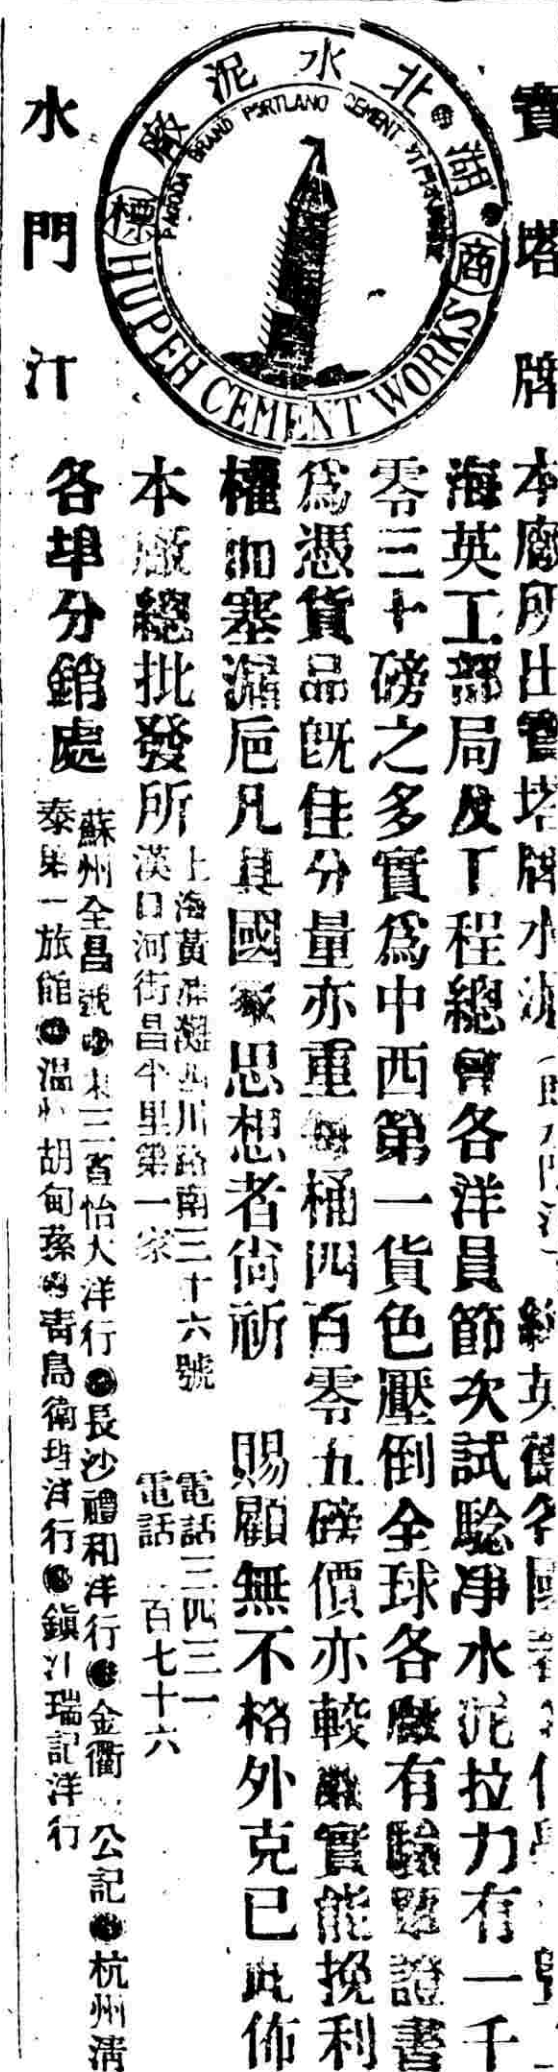 寶塔牌
湖北水泥廠
商標
PAGODA BRAND PORTLAND CEMENT
HUPEH CEMENT WORKS
水門汀
本廠所出寶塔牌水泥 經英德各國
海英工部局及工程總會各洋員節次試驗凈水泥拉力有一千
零三十磅之多實爲中西第一貨色壓倒全球各廠有驗單證書
爲憑貨品既佳分量亦重每桶四百零五磅價亦較廉實能挽利
權而塞漏巵凡具國家思想者尙祈 賜顧無不格外克已此佈
本廠總批發所
上海黃浦灘四川路南三十六號 電話三四三一
漢口河街昌平里第一家 電話 一百七十六
各埠分銷處
蘇州全昌號 東三省怡大洋行 長沙禮和洋行 金衢 公記 杭州淸
泰第一旅館 溫州胡甸蓀 靑島衛 洋行 鎭江瑞記洋行